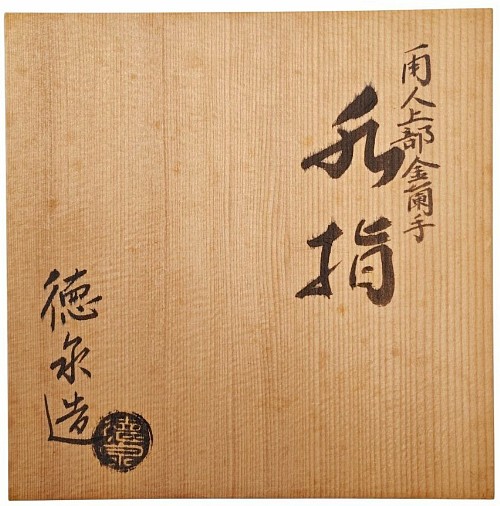 雨人上部金蘭手
水指
徳泉造
徳泉